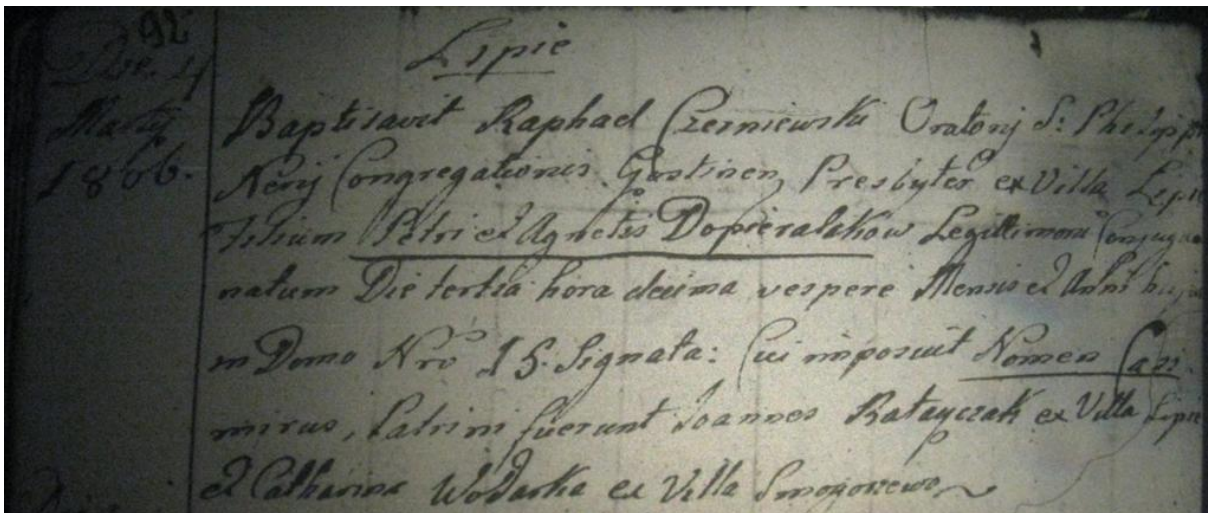 92
Lipie
Die 4
Martij
1806.
Baptisavit Raphael Czerniewski Oratorij S: Philippi
Nerij Congregationis Gostinen, Presbyter ex Villa Lipie
Filium Petri et Agnetis Dopieralakow Legittimorum Conjugum
natum Die tertia hora decima vespere Mensis et Anni hujus
in Domo Nro 15. Signata: Cui imposuit Nomen Casi
mirus, Patrini fuerunt Joannes Ratayczak ex Villa Lipie
et Catharina Wodarka ex Villa Smogorzewo